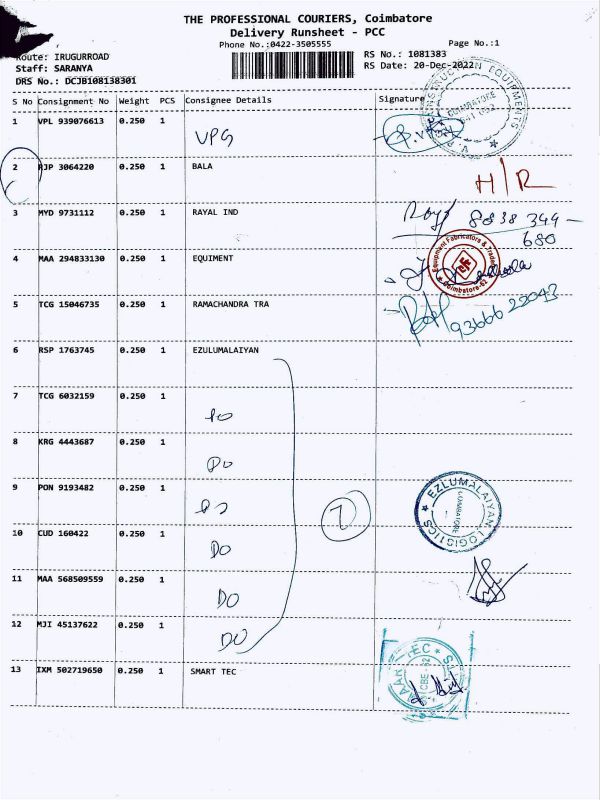 THE PROFESSIONAL COURIERS, Coimbatore
Delivery Runsheet - PCC
Phone No.:0422-3505555
Page No.:1
Route: IRUGURROAD
RS No.: 1081383
Staff: SARANYA
RS Date: 20-Dec-2022
DRS No.: DCJB108138301
S No Consignment No Weight PCS Consignee Details Signature
1 VPL 939076613 0.250 1 VPG
2 RJP 3064220 0.250 1 BALA H/R
3 MYD 9731112 0.250 1 RAYAL IND 8838 349-
680
4 MAA 294833130 0.250 1 EQUIMENT
Equipment Fabricators & Traders
Coimbatore-62
5 TCG 15046735 0.250 1 RAMACHANDRA TRA
93666 22043
6 RSP 1763745 0.250 1 EZULUMALAIYAN
7 TCG 6032159 0.250 1 DO
8 KRG 4443687 0.250 1 DO
9 PON 9193482 0.250 1 DO
EZLUMALAIYAN LOGISTICS
COIMBATORE
10 CUD 160422 0.250 1 DO
11 MAA 568509559 0.250 1 DO
12 MJI 45137622 0.250 1 DO
7
13 IXM 502719650 0.250 1 SMART TEC